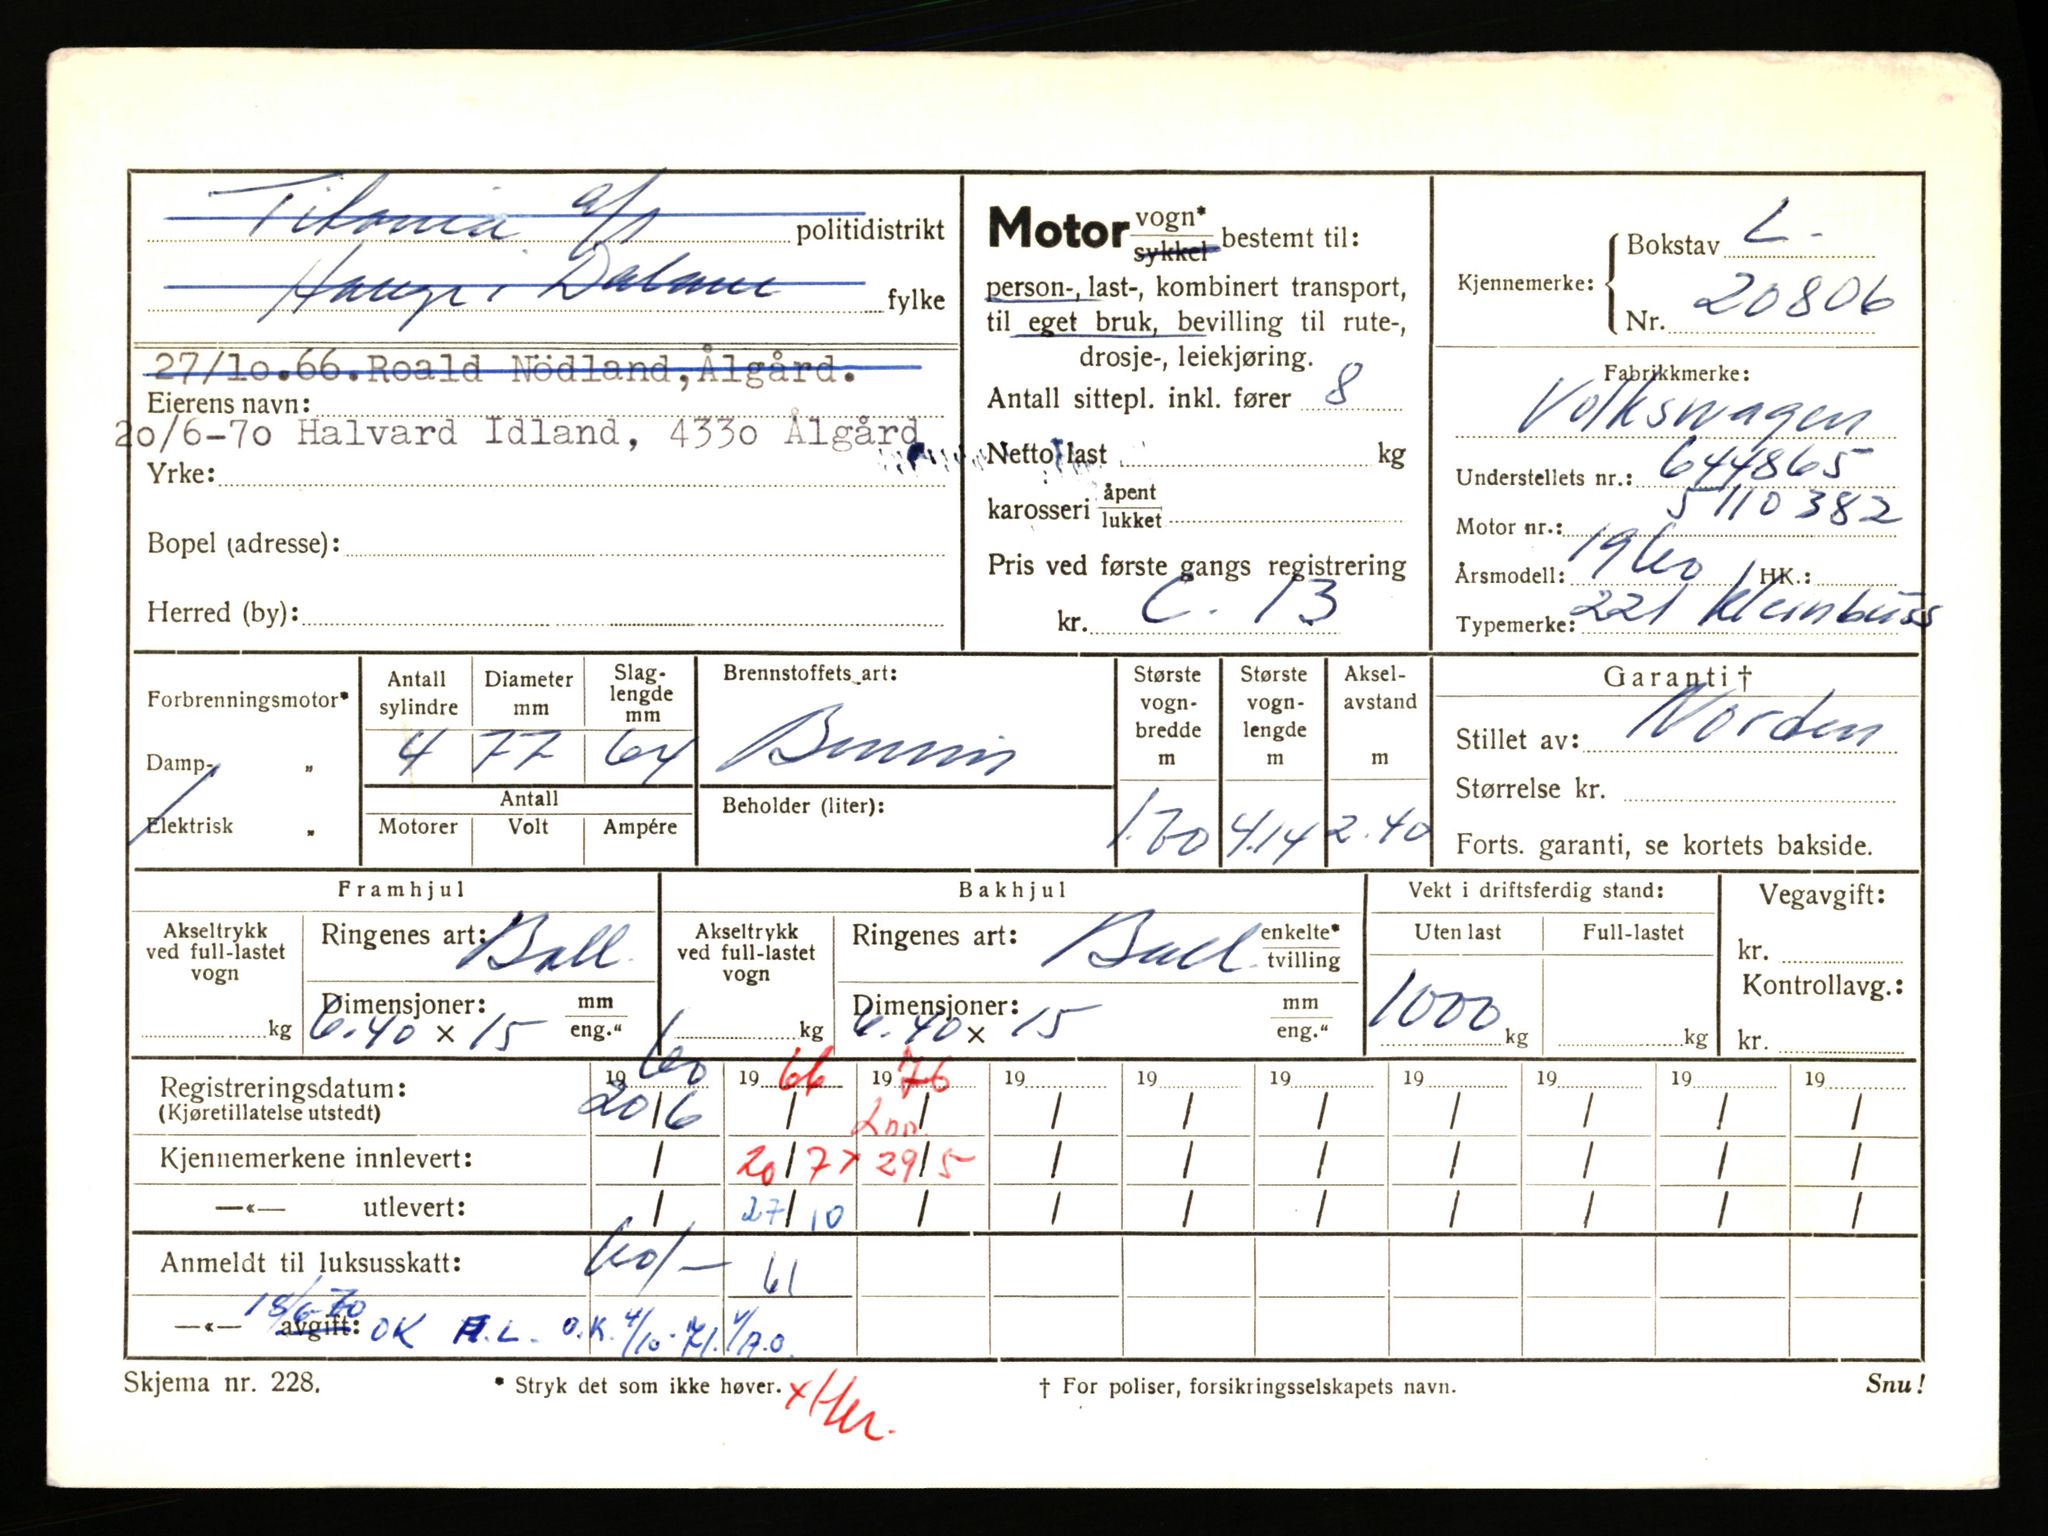 Titania a/s politidistrikt
Hauge i Dalane fylke
27/10.66.Roald Nödland, Ålgård.
Eierens navn:
20/6-70 Halvard Idland, 4330 Ålgård
Yrke:
Bopel (adresse):
Herred (by):
Motor vogn* sykkel bestemt til:
person-, last-, kombinert transport,
til eget bruk, bevilling til rute-,
drosje-, leiekjøring.
Antall sittepl. inkl. fører 8
Netto last kg
karosseri åpent lukket
Pris ved første gangs registrering
kr. C. 13
Kjennemerke: Bokstav L.
Nr. 20806
Fabrikkmerke:
Volkswagen
Understellets nr.: 644865
Motor nr.: 5110382
Årsmodell: 1960 HK.:
Typemerke: 221 kleinbuss
Forbrenningsmotor*
Damp- „
Elektrisk „
Antall sylindre 4
Diameter mm 77
Slaglengde mm 64
Antall
Motorer Volt Ampére
Brennstoffets art:
Bensin
Beholder (liter):
Største vogn-bredde m 1.70
Største vogn-lengde m 4.14
Aksel-avstand m 2.40
Garanti †
Stillet av: Norden
Størrelse kr.
Forts. garanti, se kortets bakside.
Framhjul
Akseltrykk ved full-lastet vogn kg
Ringenes art: Ball.
Dimensjoner: mm eng."
6.40 × 15
Bakhjul
Akseltrykk ved full-lastet vogn kg
Ringenes art: Ball. enkelte* tvilling
Dimensjoner: mm eng."
6.40 × 15
Vekt i driftsferdig stand:
Uten last Full-lastet
1000 kg kg
Vegavgift:
kr.
Kontrollavg.:
kr.
Registreringsdatum: 1960 1966 1976 19 19 19 19 19 19 19
(Kjøretillatelse utstedt) 20/6 / / / / / / / / /
Kjennemerkene innlevert: / 20/7 × 29/5 / / / / / / /
—«— utlevert: / 27/10 / / / / / / / /
Anmeldt til luksusskatt: 60/- 61
18/6-70
—«— avgift: OK A.L. O.K. 4/10-71.
Skjema nr. 228.
* Stryk det som ikke høver.
† For poliser, forsikringsselskapets navn.
Snu!